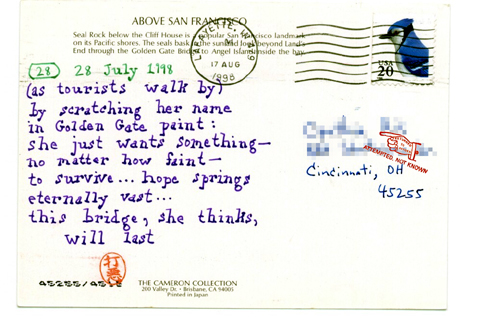 ABOVE SAN FRANCISCO
Seal Rock below the Cliff House is a popular San Francisco landmark
on its Pacific shores. The seals bask in the sun and look beyond Land's
End through the Golden Gate Bridge to Angel Island inside the bay.
LAFAYETTE, IN 479
P M
17 AUG
1998
USA
20
28
28 July 1998
(as tourists walk by)
by scratching her name
in Golden Gate paint:
she just wants something—
no matter how faint—
to survive... hope springs
eternally vast...
this bridge, she thinks,
will last
ATTEMPTED, NOT KNOWN
Cincinnati, OH
45255
THE CAMERON COLLECTION
200 Valley Dr. • Brisbane, CA 94005
Printed in Japan